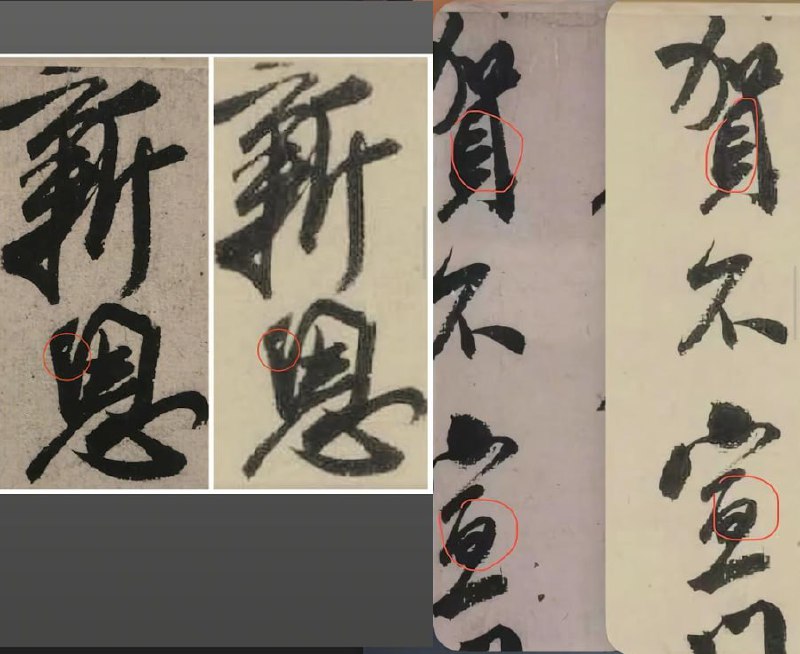 新恩
新恩
賀不宣
賀不宣